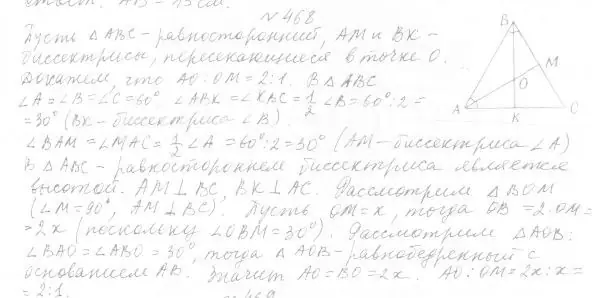 Ответ: AB - 15 см.
№468
Пусть △ABC - равносторонний, AM и BK -
биссектрисы, пересекающиеся в точке O.
Докажем, что AO:OM=2:1. В △ABC
∠A=∠B=∠C=60° ∠ABK=∠KBC=1/2 ∠B=60°:2=
=30° (BK-биссектриса ∠B).
∠BAM=∠MAC=1/2 ∠A=60°:2=30° (AM-биссектриса ∠A)
В △ABC - равностороннем биссектриса является
высотой. AM⊥BC, BK⊥AC. Рассмотрим △BOM
(∠M=90°, AM⊥BC). Пусть OM=x, тогда OB=2·OM=
=2x (поскольку ∠OBM=30°). Рассмотрим △AOB:
∠BAO=∠ABO=30°, тогда △AOB-равнобедренный с
основанием AB. Значит AO=BO=2x. AO:OM=2x:x=
=2:1.
№469
B
M
O
A
K
C